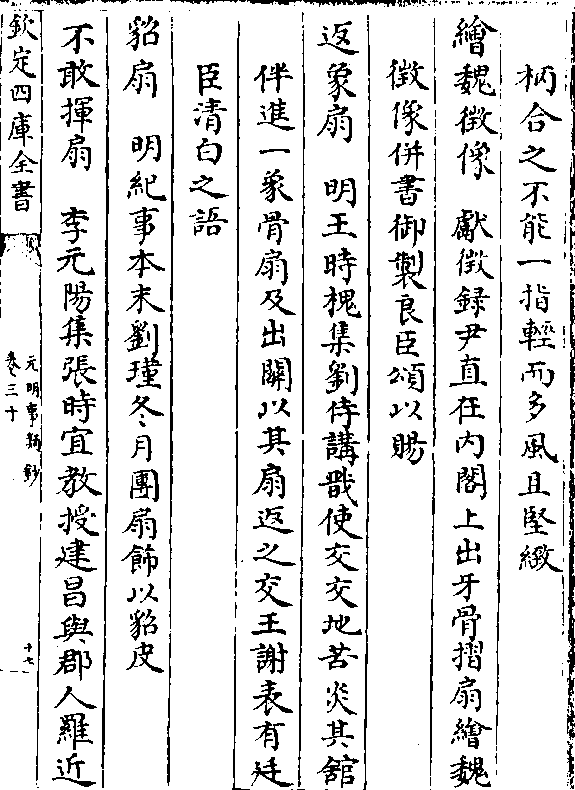 柄合之不能一指輕而多風且堅緻
繪魏徴像　獻徴録尹直在内閣上出牙骨摺扇繪魏
徴像併書御製良臣頌以賜
返象扇　明王時槐集劉侍講戩使交交地苦炎其舘
伴進一象骨扇及出關以其扇返之交王謝表有廷
臣清白之語
貂扇　明紀事本末劉瑾冬月團扇飾以貂皮
不敢揮扇　李元陽集張時宜教授建昌與郡人羅近
欽定四庫全書
元明事類鈔
卷三十
十七